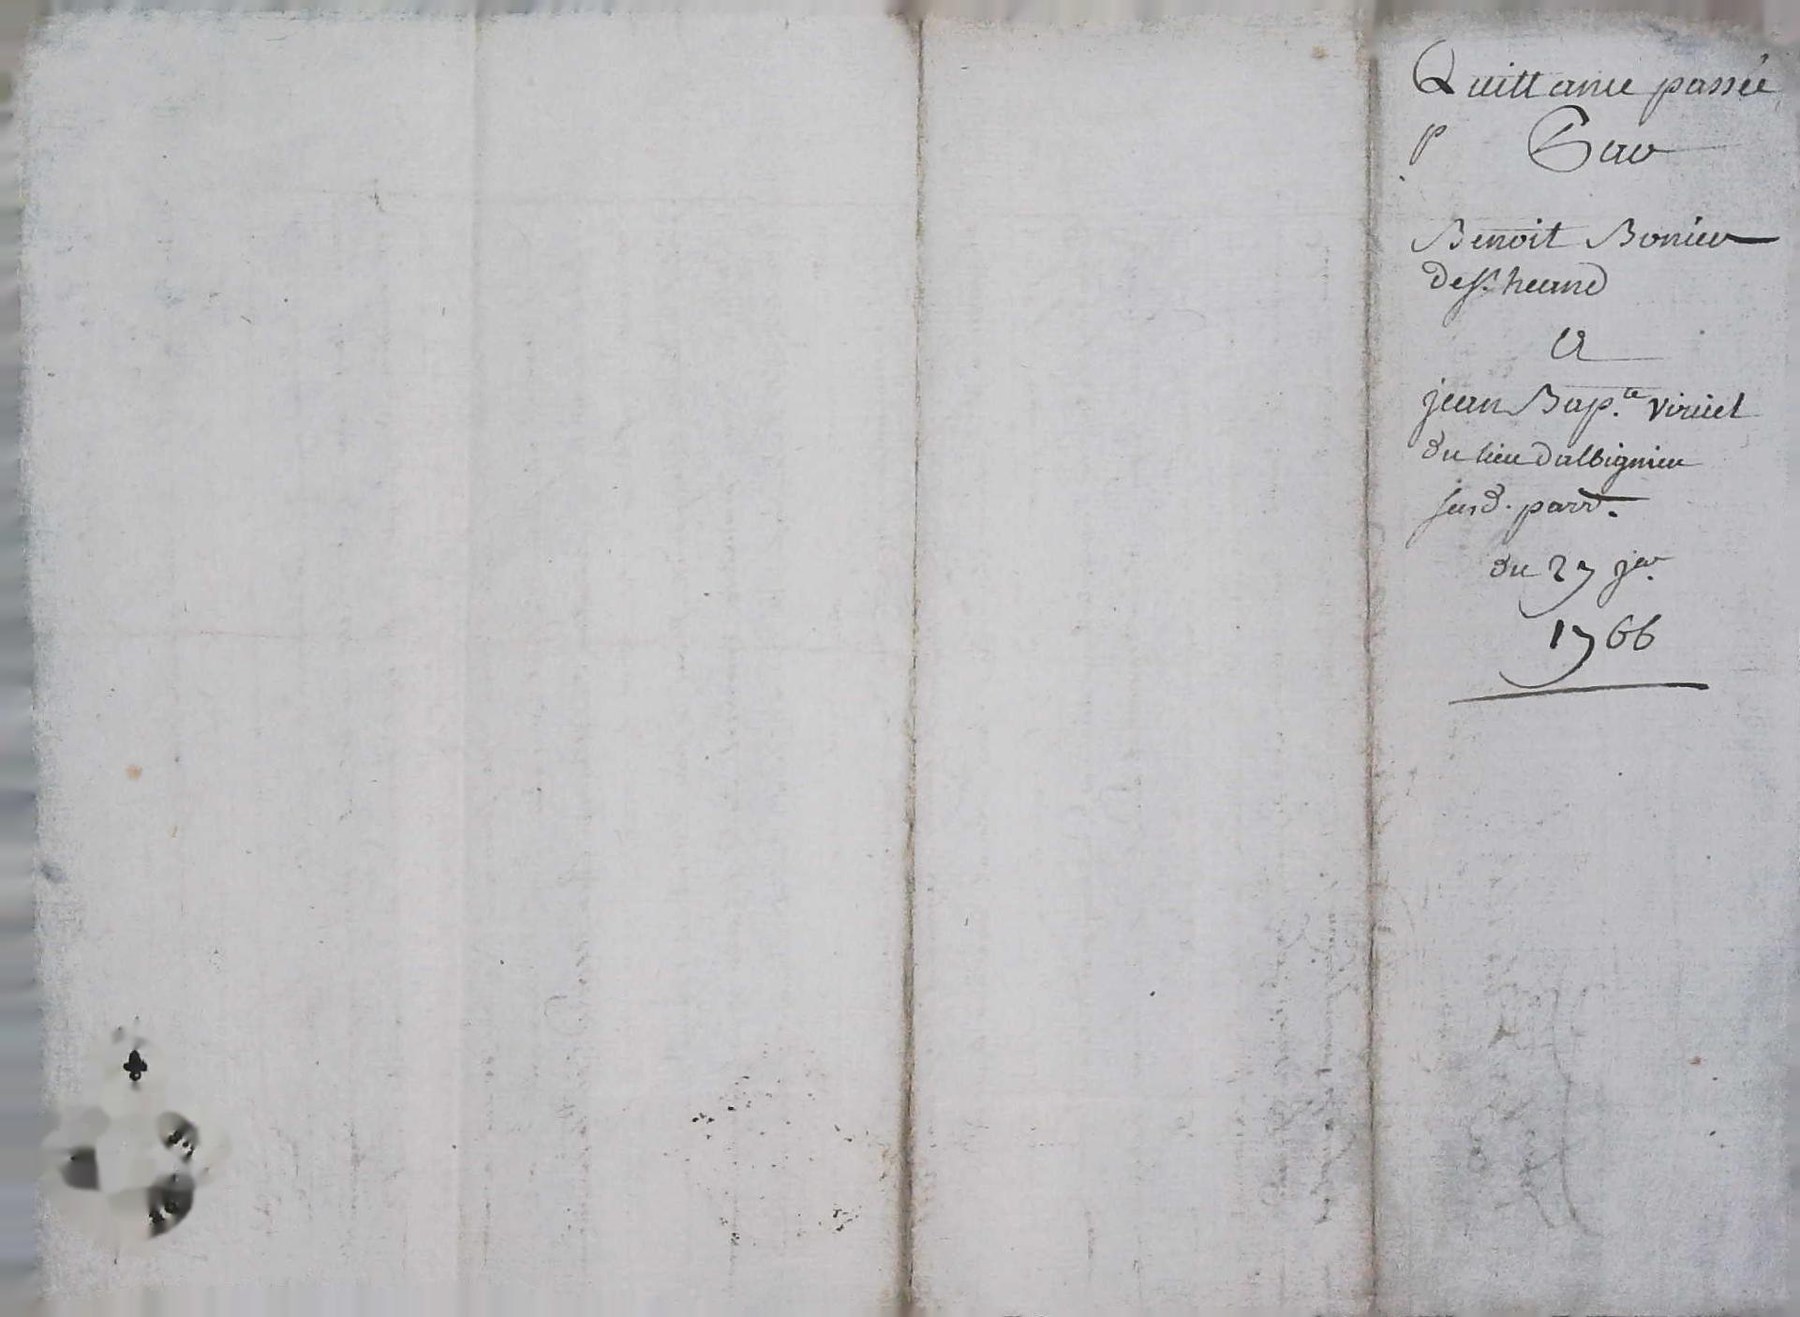 Quittance passée
p Par
Benoit Bonier
de st. heand
A
jean Bap.te viricel
du lieu dalbigneu
susd. parr.
du 27 jer.
1766